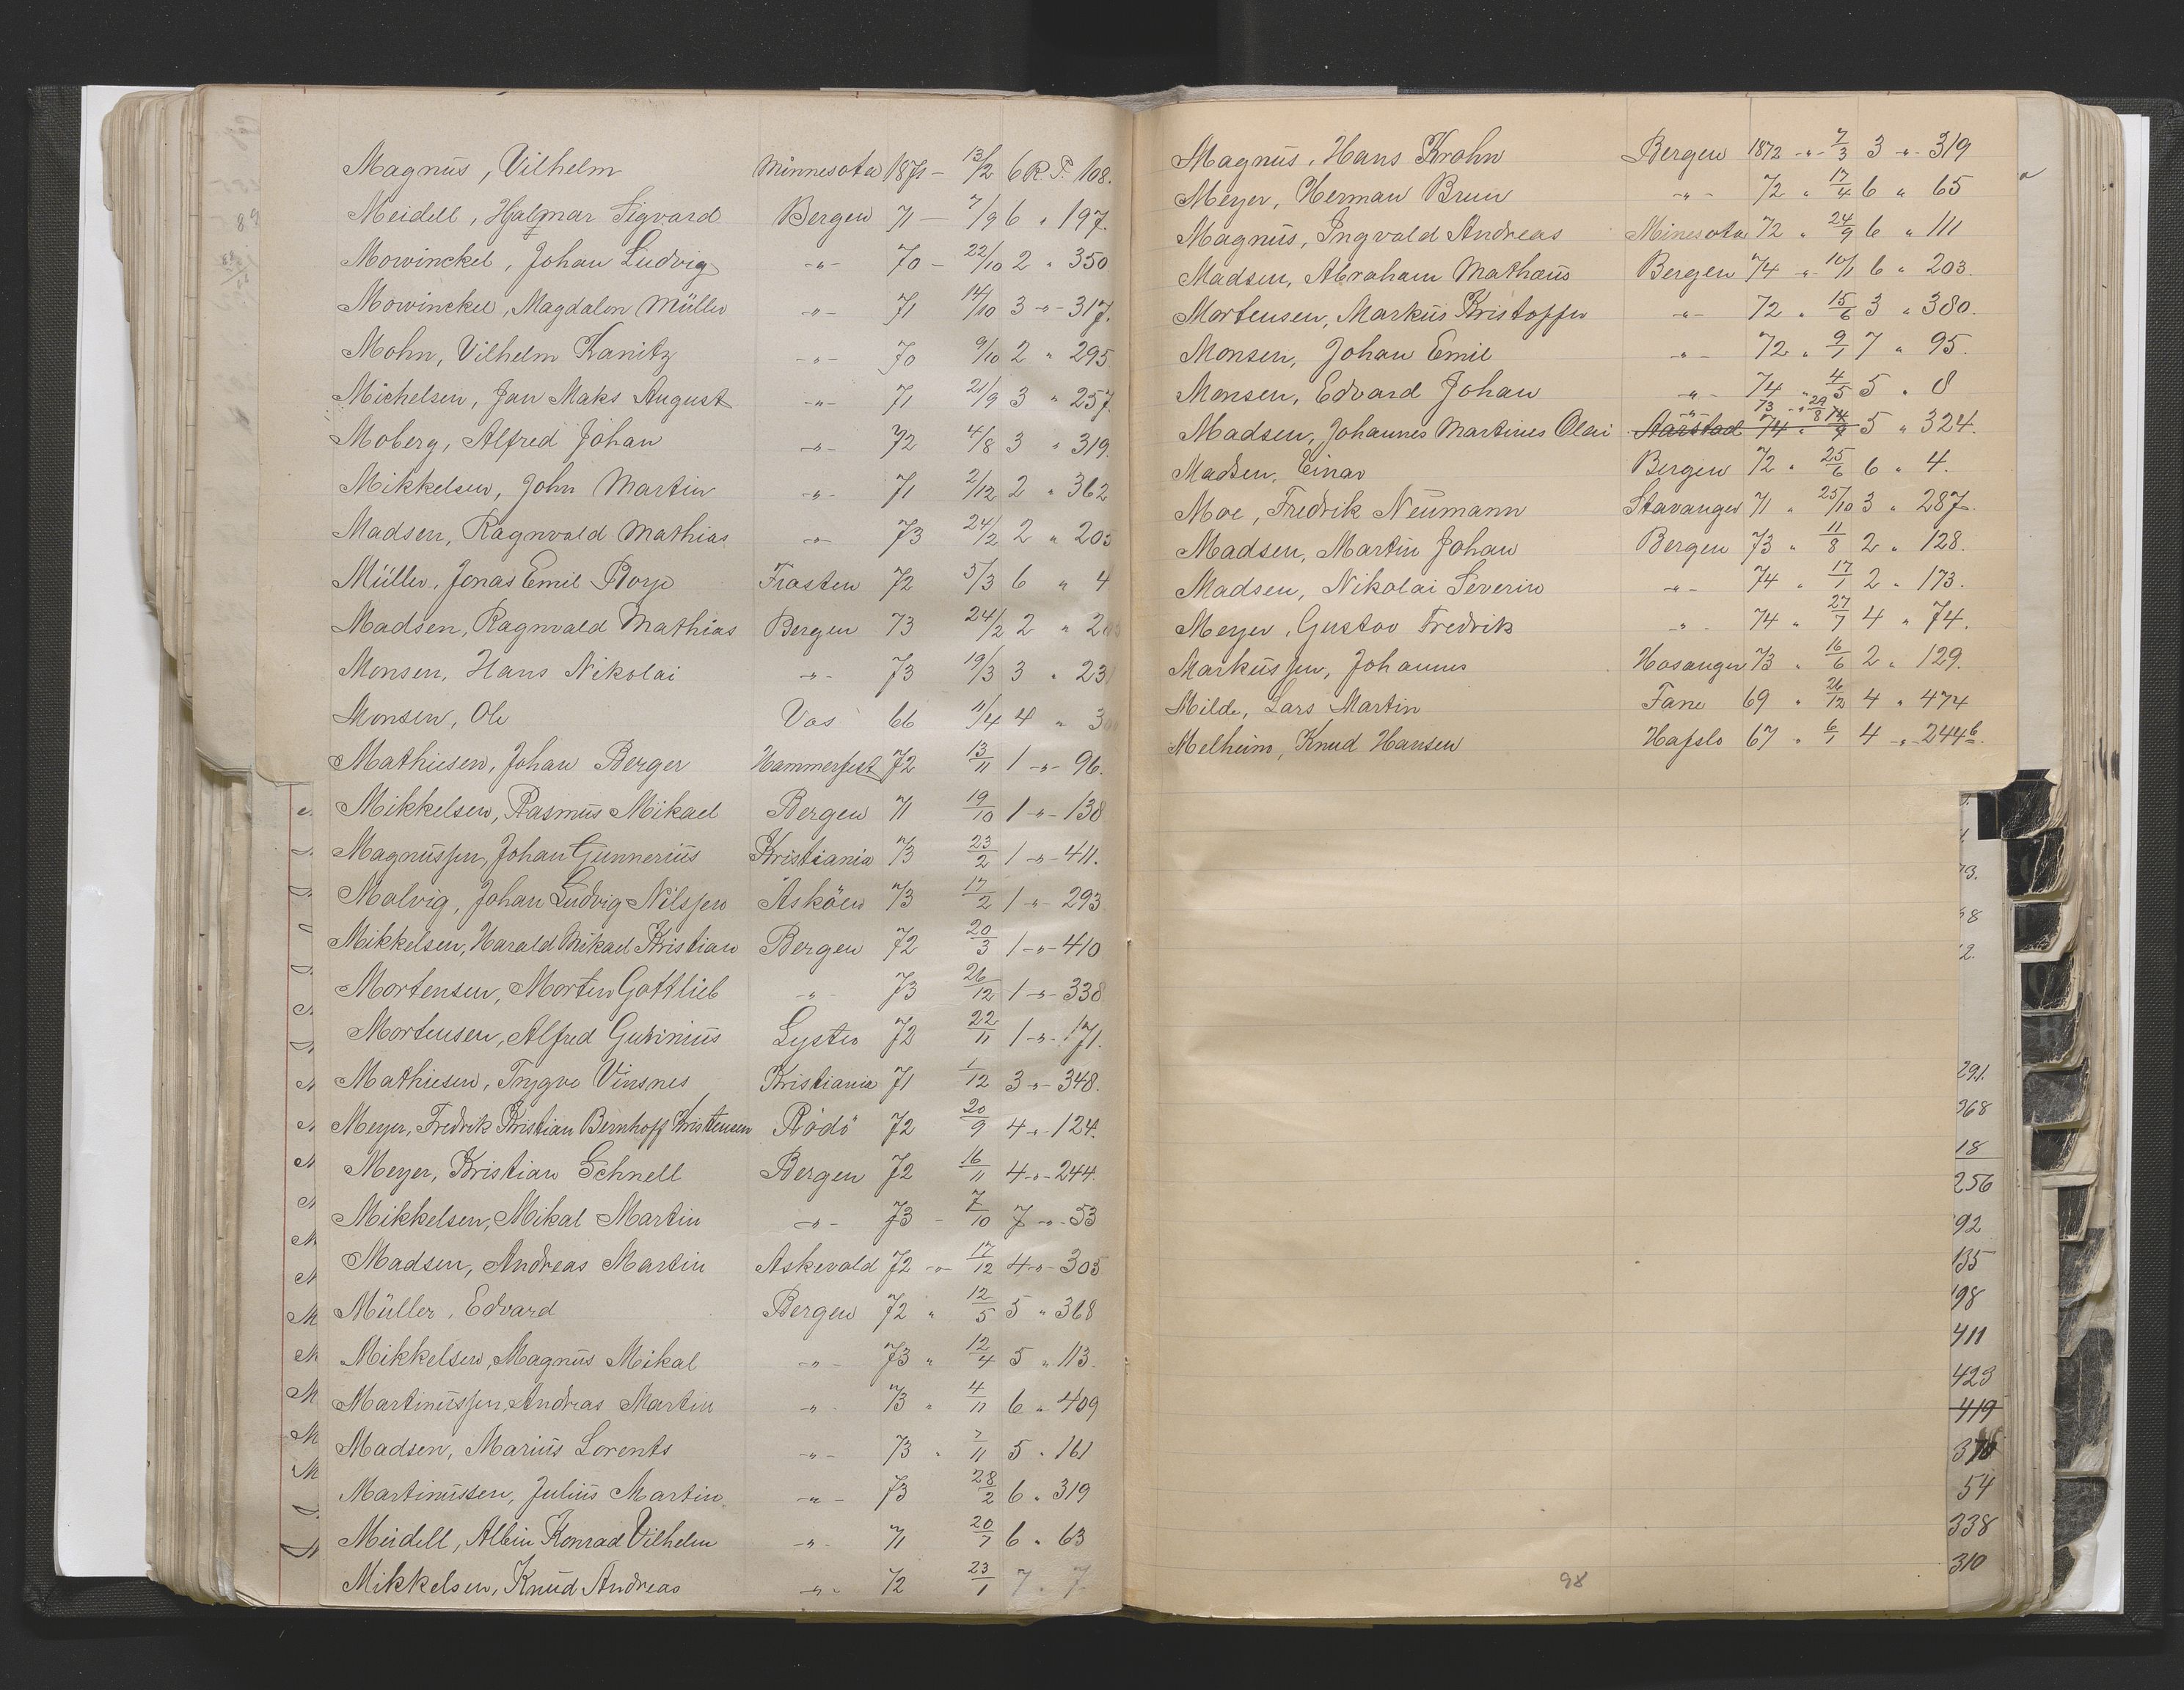 Magnus, Vilhelm Minnesota 1871 - 13/2 6 R.T. 108.
Meidell, Hjalmar Sigvard Bergen 71 - 7/9 6 " 197.
Mowinckel, Johan Ludvig -"- 70 - 22/10 2 " 350
Mowinckel, Magdalon Müller -"- 71 14/10 3 -"- 317.
Mohn, Vilhelm Kanitz -"- 70 9/10 2 " 295
Michelsen, Jan Maks August -"- 71 21/9 3 " 257.
Moberg, Alfred Johan -"- 72 4/8 3 " 319.
Mikkelsen, John Martin -"- 71 2/12 2 " 362
Madsen, Ragnvald Mathias -"- 73 24/2 2 " 205
Müller, Jonas Emil Rorje Frosten 72 5/3 6 " 4
Madsen, Ragnvald Mathias Bergen 73 24/2 2 "
Monsen, Hans Nikolai -"- 73 19/3 3 "
Monsen, Ole Vos 66 4 "
Mathiesen, Johan Berger Hammerfest 72 13/11 1 -"- 96.
Mikkelsen, Rasmus Mikael Bergen 71 19/10 1 -"- 138
Magnussen, Johan Gunnerius Kristiania 73 23/2 1 -"- 411.
Malvig, Johan Ludvig Nilssen Asköen 73 17/2 1 -"- 293
Mikkelsen, Harald Mikael Kristian Bergen 72 20/3 1 -"- 410
Mortensen, Morten Gottlieb -"- 73 26/12 1 -"- 338
Mortensen, Alfred Gurinius Lyster 72 22/11 1 -"- 171.
Mathiesen, Trygve Vinsnes Kristiania 71 1/12 3 -"- 348.
Meyer, Fredrik Kristian Bernhoff Kristensen Rödö 72 20/9 4 -"- 124.
Meyer, Kristian Schnell Bergen 72 16/11 4 -"- 244.
Mikkelsen, Mikal Martin -"- 73 - 7/10 7 -"- 53
Madsen, Andreas Martin Askevold 72 -"- 17/12 4 -"- 305
Müller, Edvard Bergen 72 " 12/5 5 " 368
Mikkelsen, Magnus Mikal -"- 73 " 12/4 5 " 113.
Martinussen, Andreas Martin -"- 73 " 4/11 6 " 409
Madsen, Marius Lorents -"- 73 " 7/11 5 " 161
Martinussen, Julius Martin -"- 73 28/2 6 " 319
Meidell, Albin Konrad Vilhelm -"- 71 20/7 6 " 63
Mikkelsen, Knud Andreas -"- 72 23/1 7 " 7
Magnus, Hans Krohn Bergen 1872 -"- 7/3 3 -"- 319
Meyer, Herman Brun -"- 72 " 17/4 6 " 65
Magnus, Ingvald Andreas Minesota 72 " 24/9 6 " 111
Madsen, Abraham Mathæus Bergen 74 -"- 10/1 6 " 203.
Mortensen, Markus Kristoffer -"- 72 " 15/6 3 " 380.
Monsen, Johan Emil -"- 72 " 9/1 7 " 95.
Monsen, Edvard Johan -"- 74 " 4/5 5 " 8
-"- 73 -"- 29/8
Madsen, Johannes Martinus Olai Aarstad 74 " 5 " 324.
Madsen, Einar Bergen 72 " 25/6 6 " 4.
Moe, Fredrik Neumann Stavanger 71 " 25/10 3 " 287.
Madsen, Martin Johan Bergen 73 " 11/8 2 " 128.
Madsen, Nikolai Severin -"- 74 " 17/1 2 " 173.
Meyer, Gustav Fredrik -"- 74 " 27/7 4 " 74.
Markussen, Johannes Hosanger 73 " 16/6 2 " 129.
Milde, Lars Martin Fane 69 " 26/12 4 " 474
Melheim, Knud Hansen Hafslo 67 " 6/1 4 -"- 244b.
98
291.
368
18
256
92
135
198
411
423
419
370
54
338
310